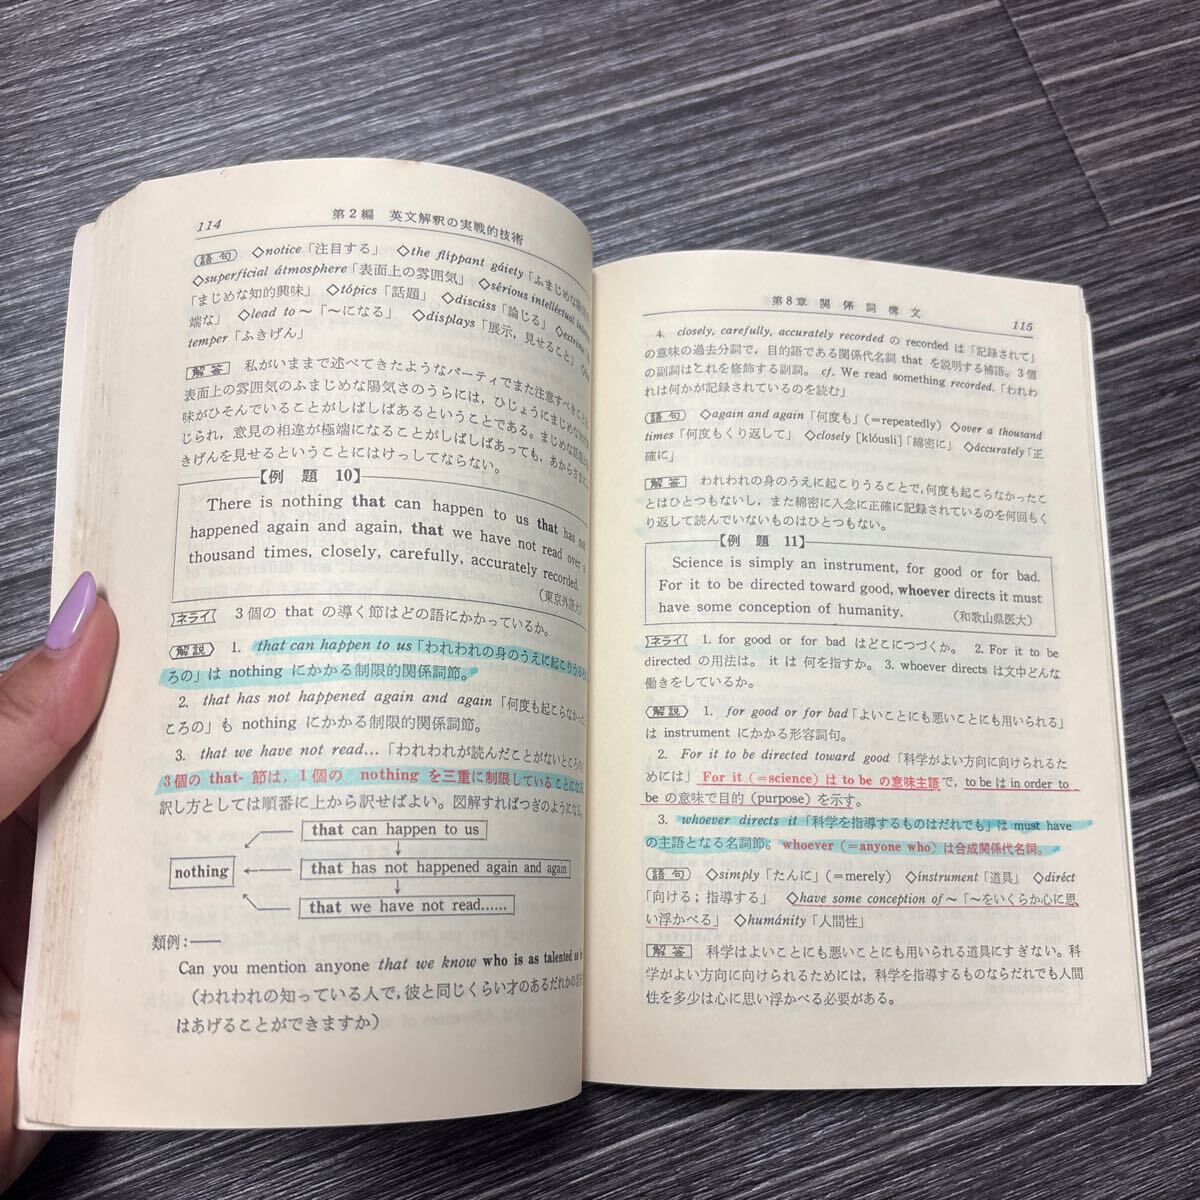 114 第2編 英文解釈の実戦的技術
語句 ◇notice「注目する」 ◇the flippant gáiety「ふまじめな陽
◇superficial átmosphere「表面上の雰囲気」 ◇sérious intelléctual
「まじめな知的興味」 ◇tópics「話題」 ◇discúss「論じる」 ◇extréme
端な」 ◇lead to～「～になる」 ◇displays「展示，見せること」
temper「ふきげん」
解答 私がいままで述べてきたようなパーティでまた注意すべきことは
表面上の雰囲気のふまじめな陽気さのうらには，ひじょうにまじめな知的
味がひそんでいることがしばしばあるということである。まじめな話題が
じられ，意見の相違が極端になることがしばしばあっても，あからさまに
きげんを見せるということにはけっしてならない。
【例題 10】
There is nothing that can happen to us that has not
happened again and again, that we have not read over a
thousand times, closely, carefully, accurately recorded.
（東京外語大）
ネライ 3個の that の導く節はどの語にかかっているか。
解説 1. that can happen to us「われわれの身のうえに起こりうると
ろの」は nothing にかかる制限的関係詞節。
2. that has not happened again and again「何度も起こらなかった
ころの」も nothing にかかる制限的関係詞節。
3. that we have not read…「われわれが読んだことがないところの」
3個の that- 節は，1個の nothing を三重に制限していることになる
訳し方としては順番に上から訳せばよい。図解すればつぎのようになる。
that can happen to us
nothing
that has not happened again and again
that we have not read……
類例：――
Can you mention anyone that we know who is as talented as he
（われわれの知っている人で，彼と同じくらい才のあるだれかの名
はあげることができますか）
第8章 関係詞構文 115
4. closely, carefully, accurately recorded の recorded は「記録されて」
の意味の過去分詞で，目的語である関係代名詞 that を説明する補語。3個
の副詞はこれを修飾する副詞。cf. We read something recorded.「われわ
れは何かが記録されているのを読む」
語句 ◇again and again「何度も」(＝repeatedly) ◇over a thousand
times「何度もくり返して」 ◇closely [klóusli]「綿密に」 ◇áccurately「正
確に」
解答 われわれの身のうえに起こりうることで，何度も起こらなかったこ
とはひとつもないし，また綿密に入念に正確に記録されているのを何回もく
り返して読んでいないものはひとつもない。
【例題 11】
Science is simply an instrument, for good or for bad.
For it to be directed toward good, whoever directs it must
have some conception of humanity. （和歌山県医大）
ネライ 1. for good or for bad はどこにつづくか。 2. For it to be
directed の用法は。it は何を指すか。3. whoever directs は文中どんな
働きをしているか。
解説 1. for good or for bad「よいことにも悪いことにも用いられる」
は instrument にかかる形容詞句。
2. For it to be directed toward good「科学がよい方向に向けられるた
めには」For it（＝science）は to be の意味主語で，to be は in order to
be の意味で目的（purpose）を示す。
3. whoever directs it「科学を指導するものはだれでも」は must have
の主語となる名詞節。whoever（＝anyone who）は合成関係代名詞。
語句 ◇simply「たんに」(＝merely) ◇instrument「道具」 ◇diréct
「向ける；指導する」 ◇have some conception of～「～をいくらか心に思
い浮かべる」 ◇humánity「人間性」
解答 科学はよいことにも悪いことにも用いられる道具にすぎない。科
学がよい方向に向けられるためには，科学を指導するものならだれでも人間
性を多少は心に思い浮かべる必要がある。